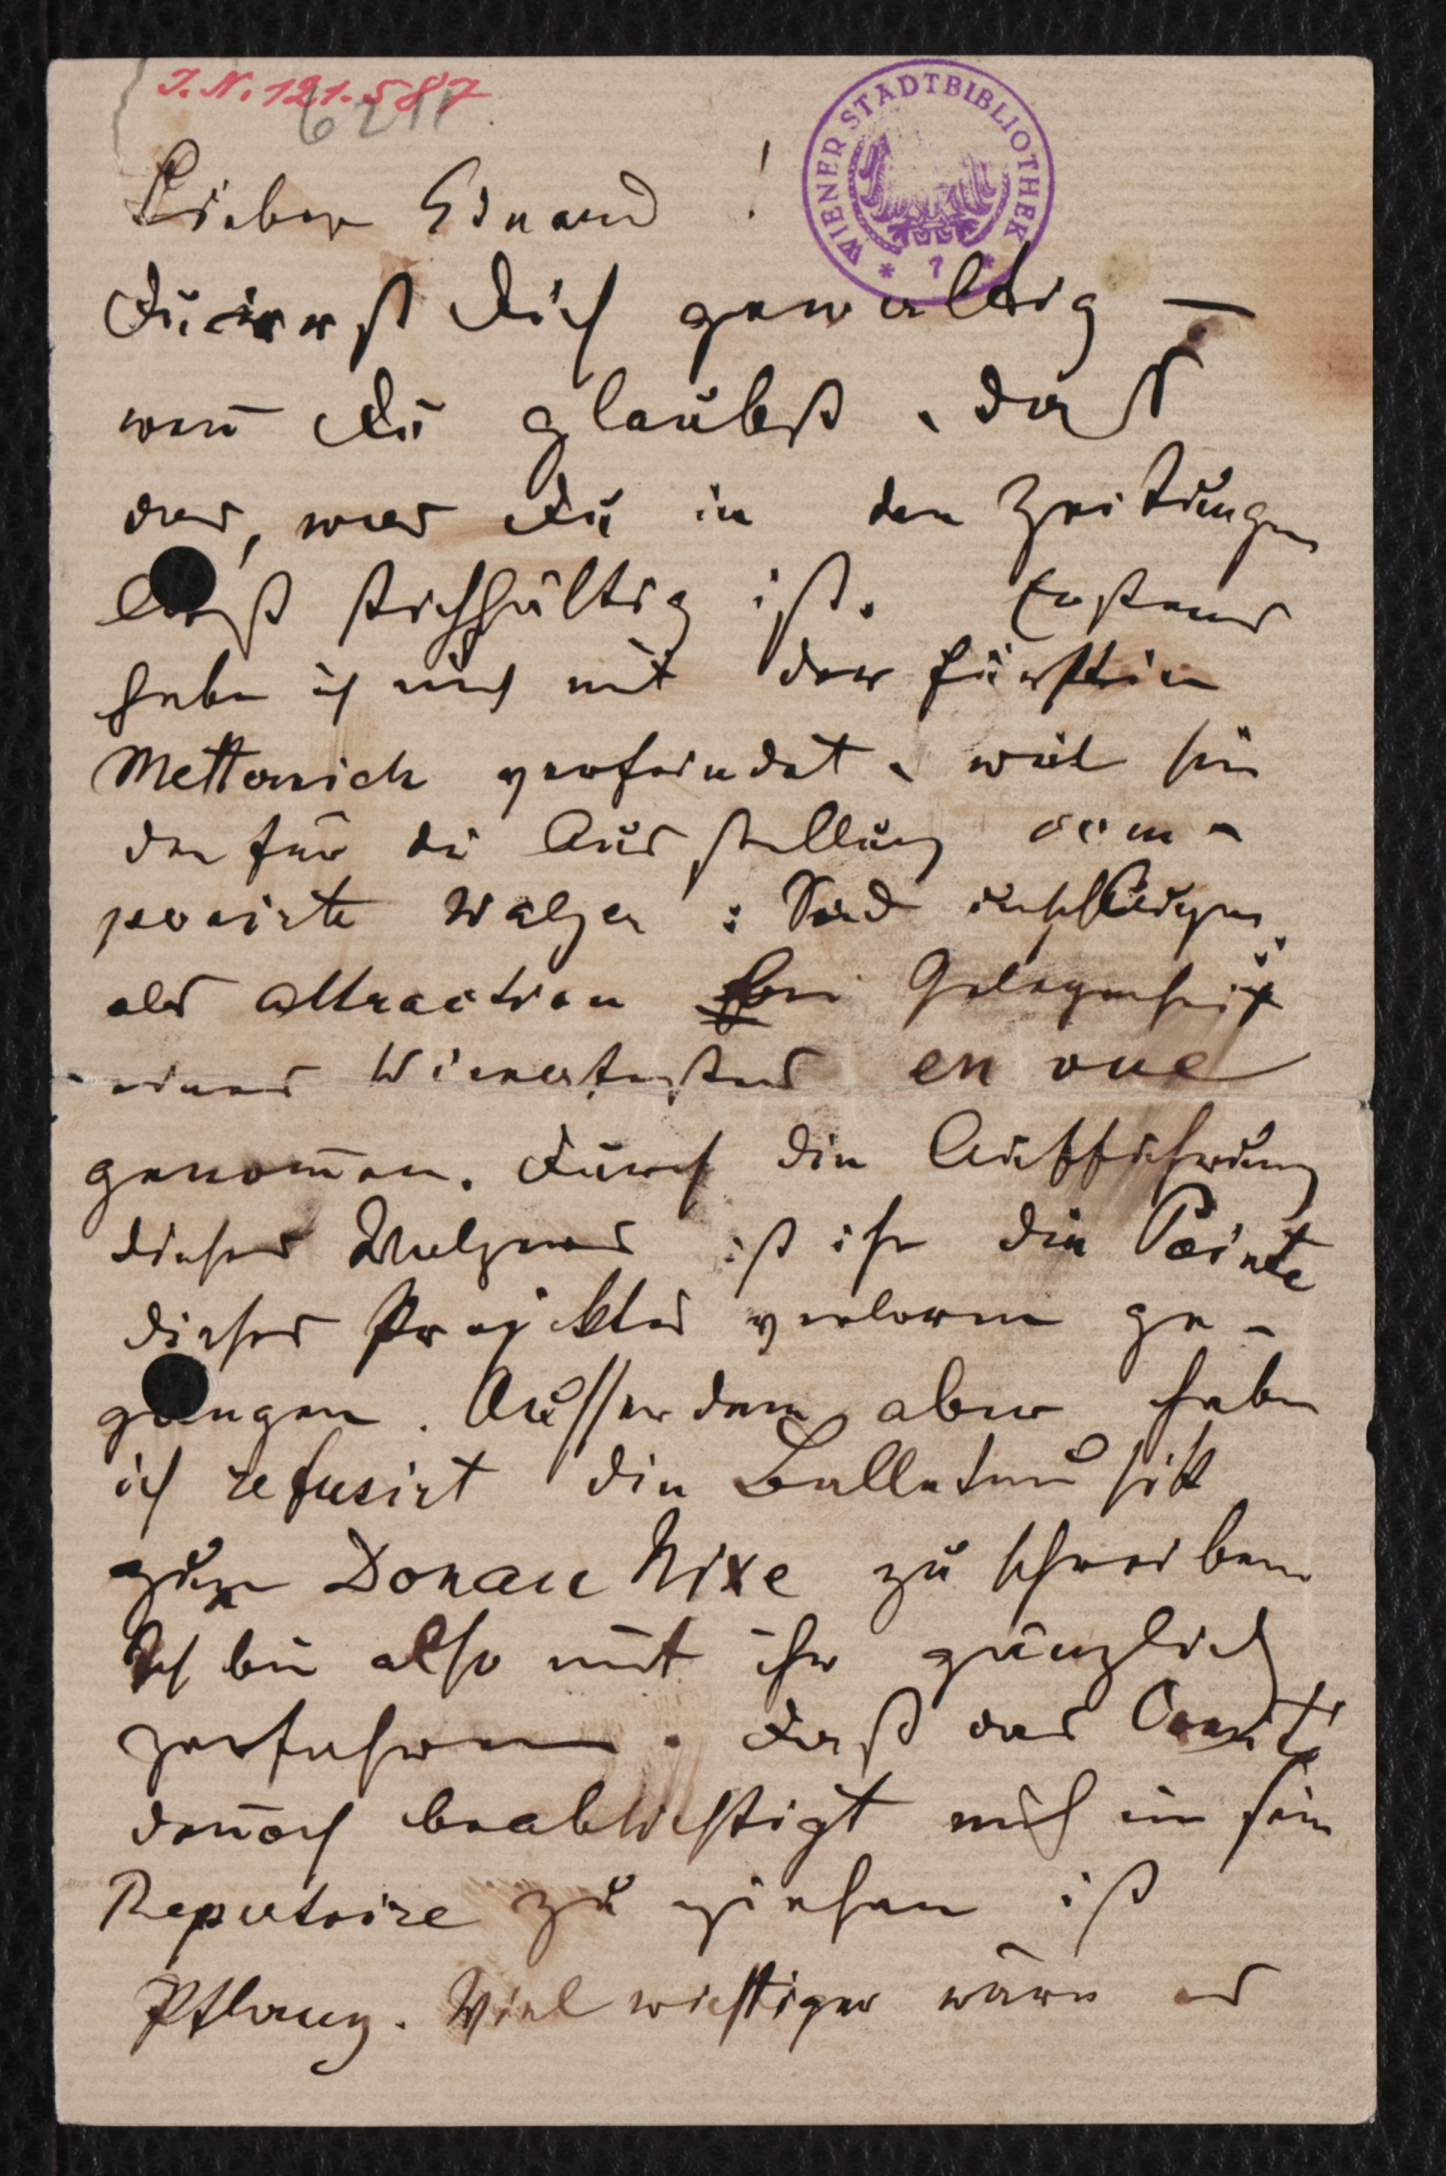 J.N. 121.587
6211
WIENER STADTBIBLIOTHEK * 7 *
Lieber Eduard!
Du irrst Dich gewaltig —
wen̄ Du glaubst, daß
das, was Du in den Zeitungen
liesst stichhältig ist. Erstens
habe ich mich mit der Fürstin
Metternich verfeindet, weil sie
den für die Ausstellung com-
ponirten Walzer: Seid umschlungen
als attraction bei Gelegenheit
eines Wienerfestes en vue
genom̄en. Durch die Aufführung
dieses Walzers ist ihr die Pointe
dieses Projektes verloren ge-
gangen. Ausserdem aber habe
ich refusirt die Balletmusik
zur Donau Nixe zu schreiben
Ich bin also mit ihr gänzlich
zerfahren. Daß das Comité
den̄och beabsichtigt mich in sein
Repertoire zu ziehen ist
Pflanz. Viel wichtiger wäre es